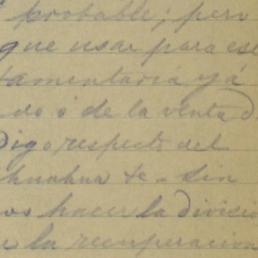 probable; pero
que usar para ese
tamentaria ya
do ó de la venta d
digo respecto del
huahua te - Sin
os hacer la divisio
e la recuperacion